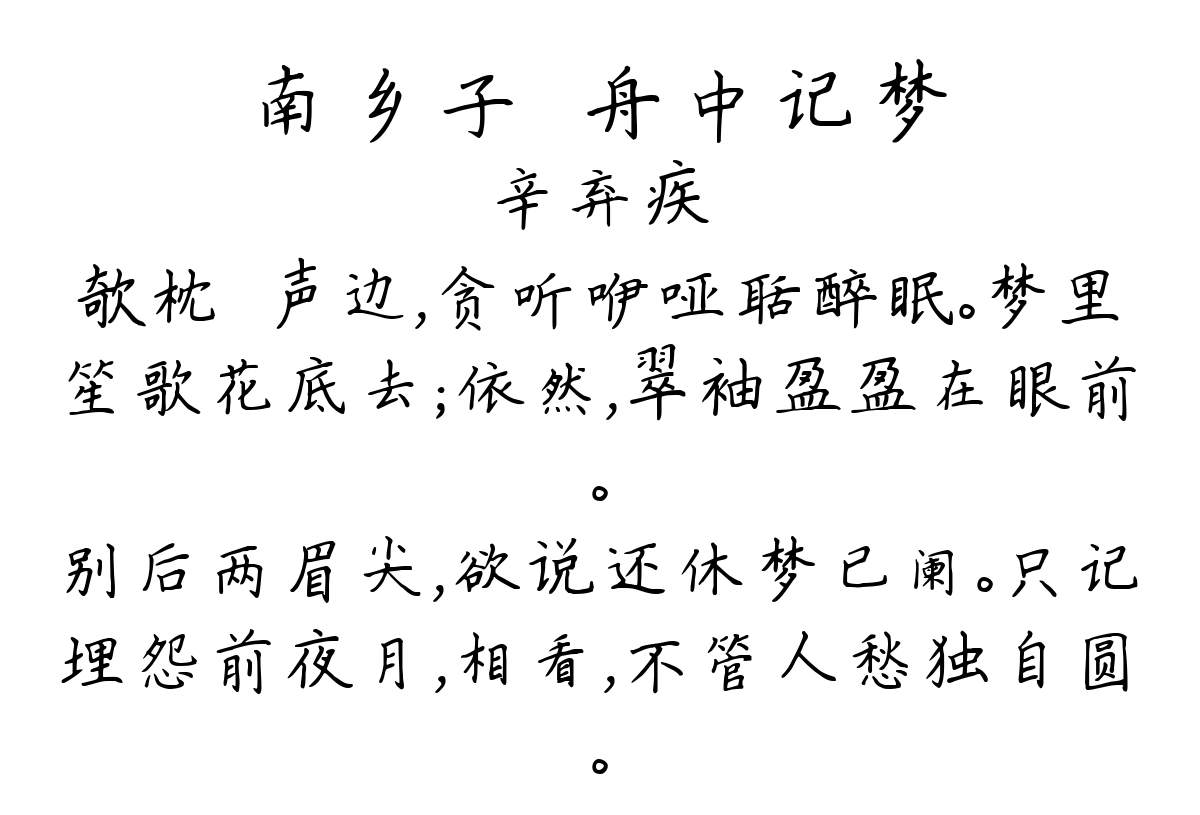 南乡子 舟中记梦
辛弃疾
欹枕 声边,贪听咿哑聒醉眠。梦里
笙歌花底去;依然,翠袖盈盈在眼前
。
别后两眉尖,欲说还休梦已阑。只记
埋怨前夜月,相看,不管人愁独自圆
。